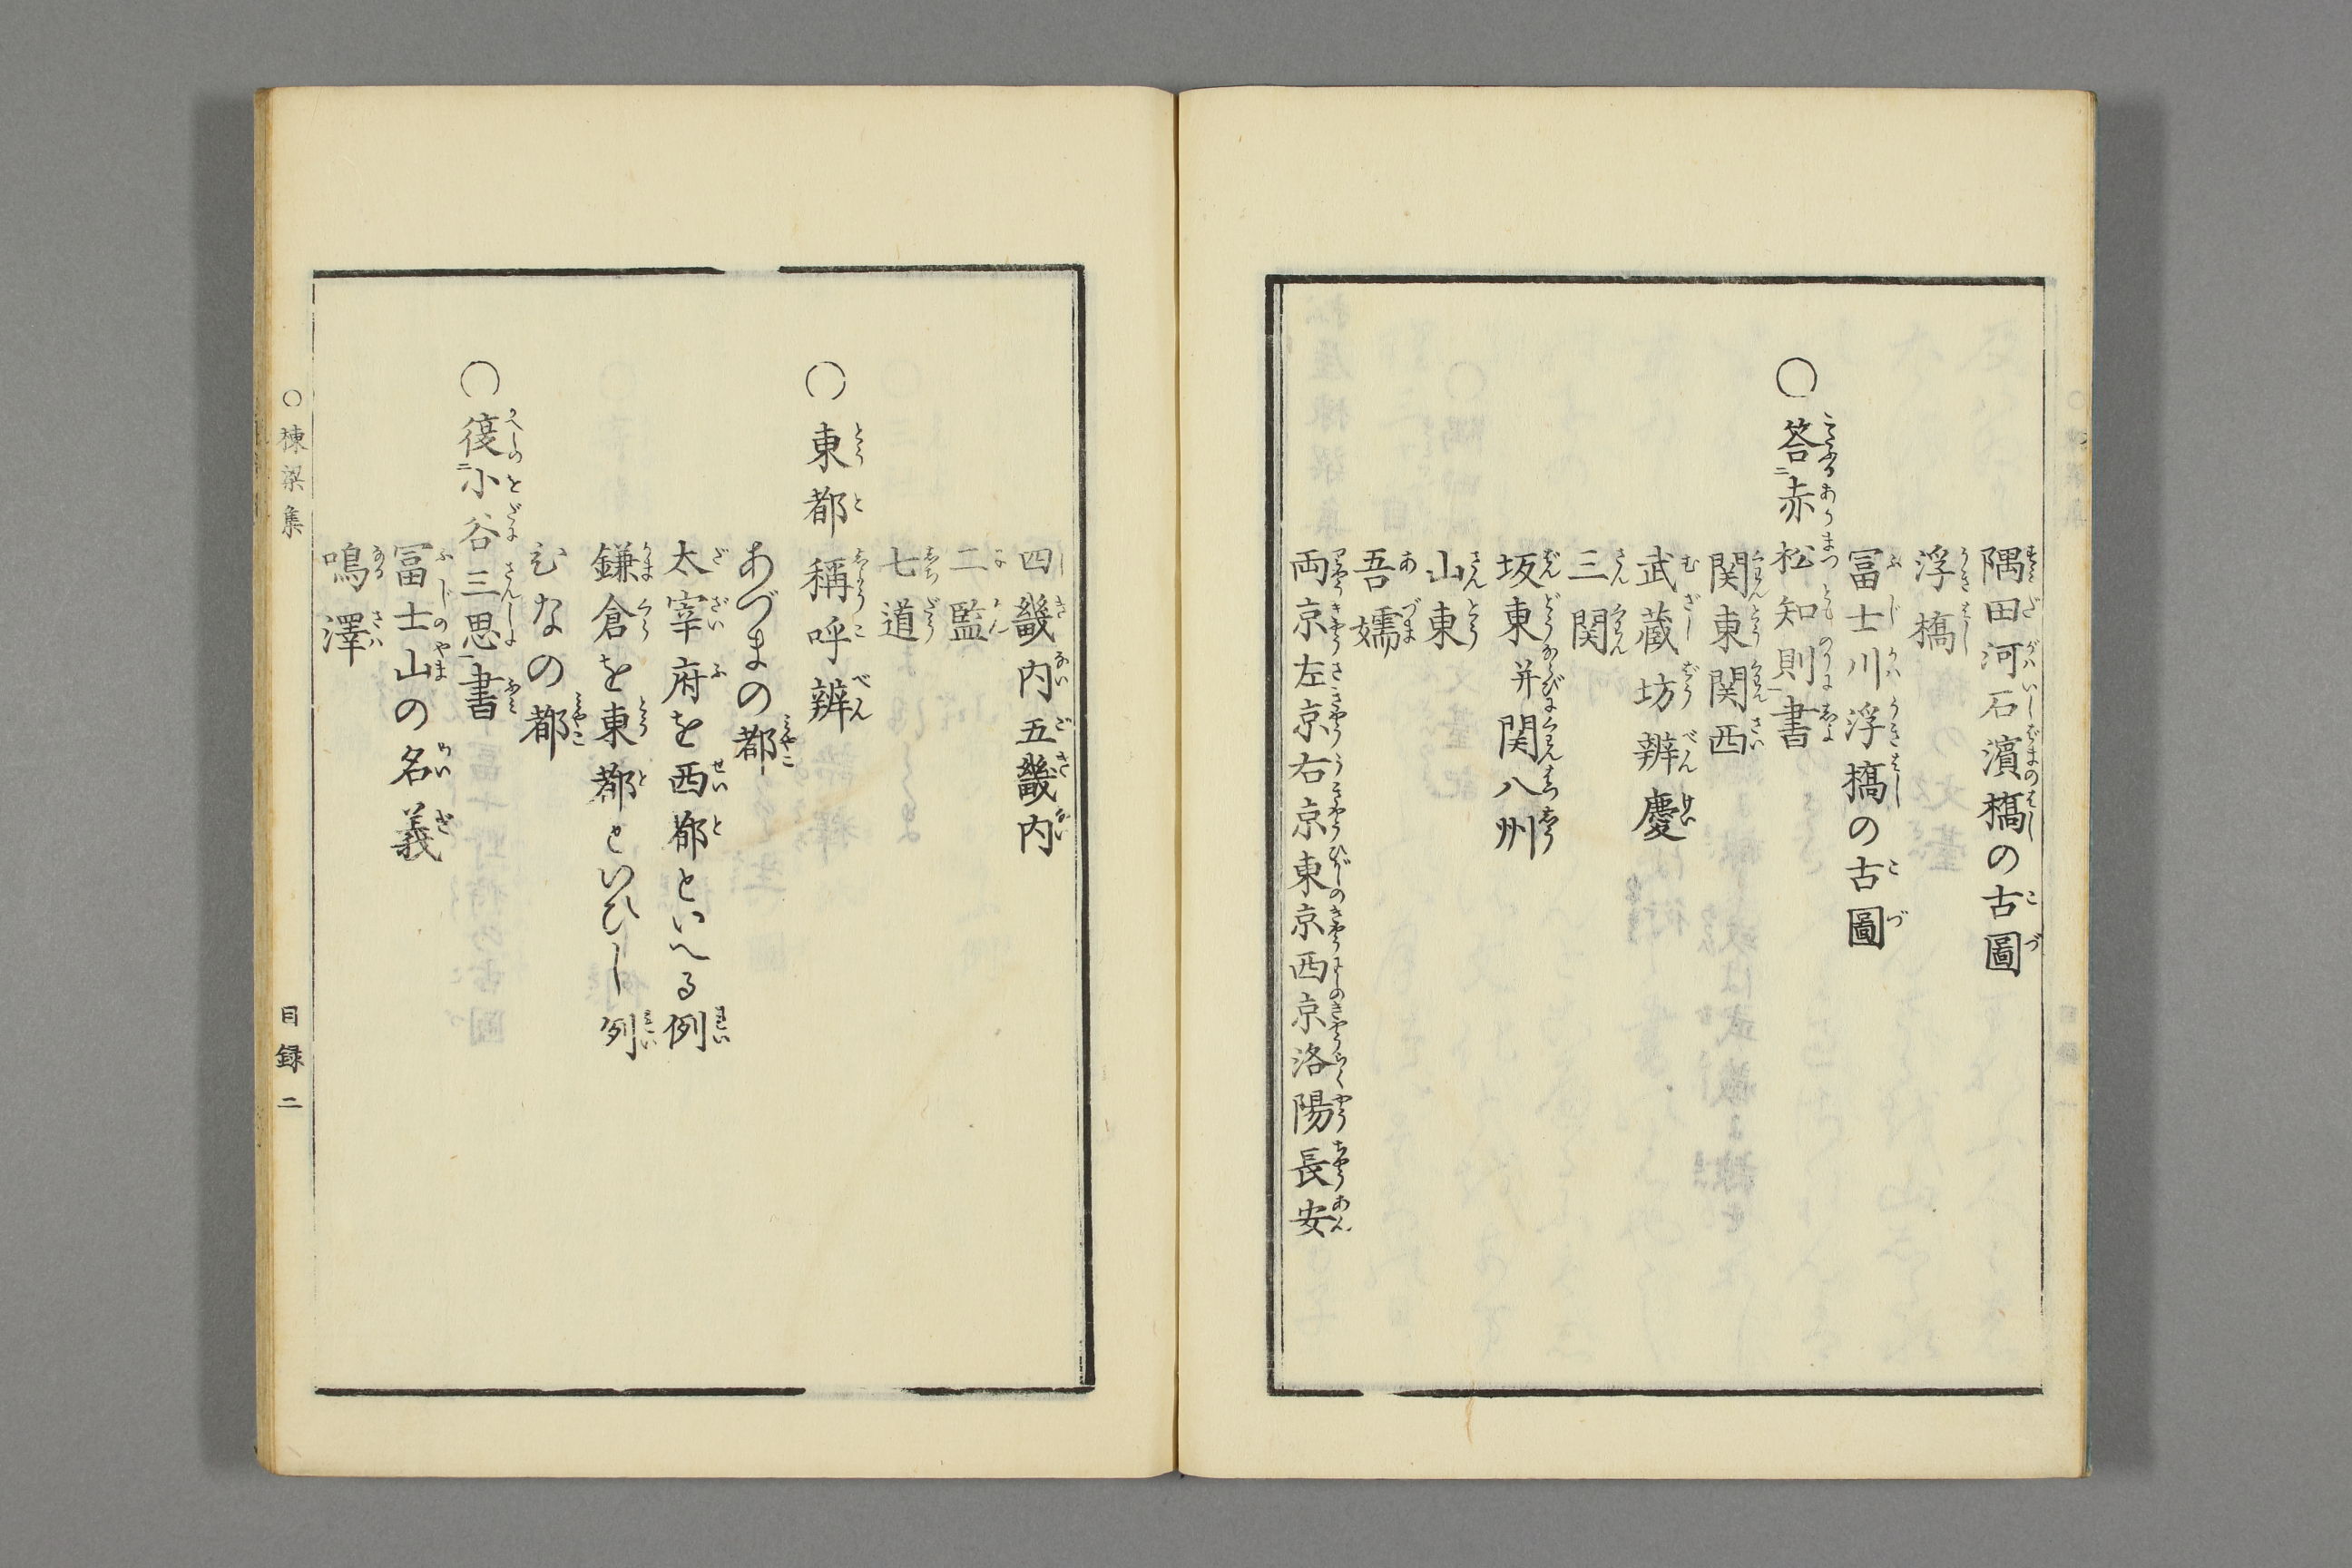 隅田河石濱橋の古圖
浮橋
冨士川浮橋の古圖
○答赤松知則書
関東関西
武蔵坊辨慶
三関
坂東并関八州
山東
吾嬬
両京左京右京東京西京洛陽長安
四畿内五畿内
二監
七道
○東都稱呼辨
あづまの都
太宰府を西都といへる例
鎌倉を東都といひし例
ひなの都
○復小谷三思書
冨士山の名義
鳴澤
○棟梁集 目録 二